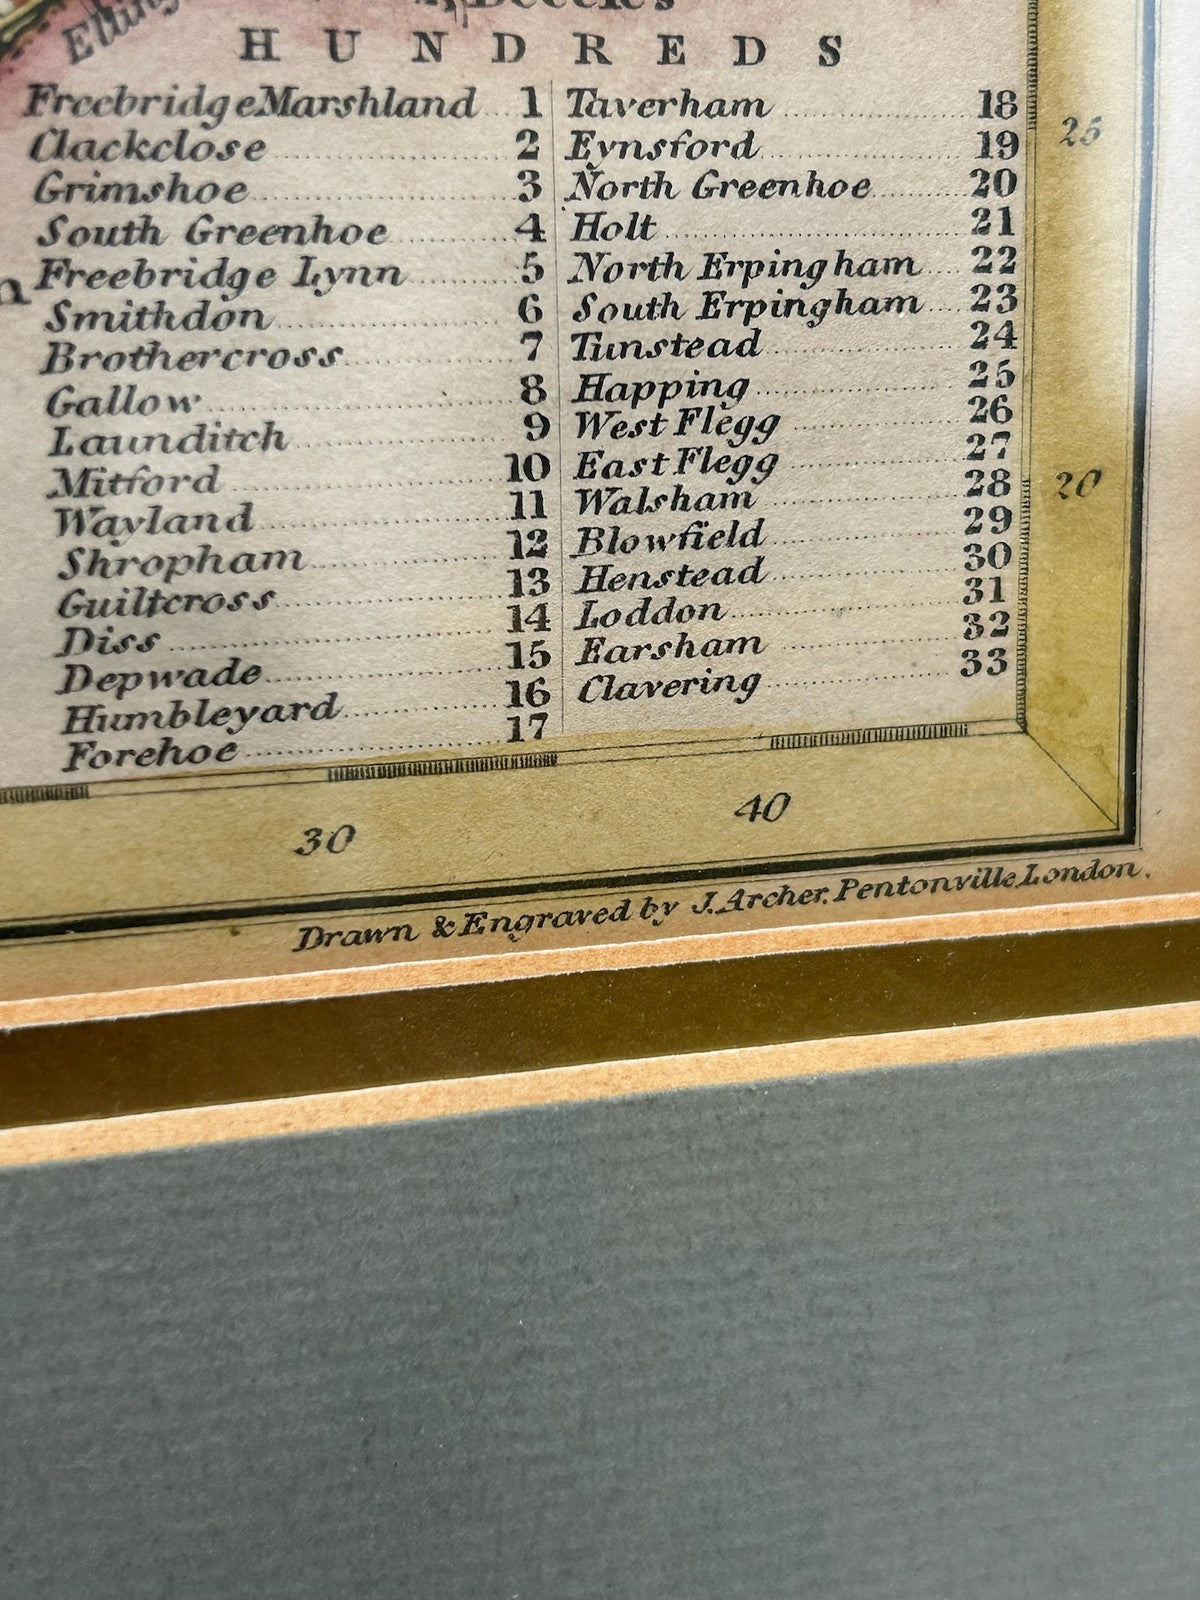 Elling
Beccles
HUNDREDS
Freebridge Marshland 1
Clackclose 2
Grimshoe 3
South Greenhoe 4
Freebridge Lynn 5
Smithdon 6
Brothercross 7
Gallow 8
Launditch 9
Mitford 10
Wayland 11
Shropham 12
Guiltcross 13
Diss 14
Depwade 15
Humbleyard 16
Forehoe 17
Taverham 18
Eynsford 19
North Greenhoe 20
Holt 21
North Erpingham 22
South Erpingham 23
Tunstead 24
Happing 25
West Flegg 26
East Flegg 27
Walsham 28
Blowfield 29
Henstead 30
Loddon 31
Earsham 32
Clavering 33
25
20
30
40
Drawn & Engraved by J. Archer, Pentonville London.